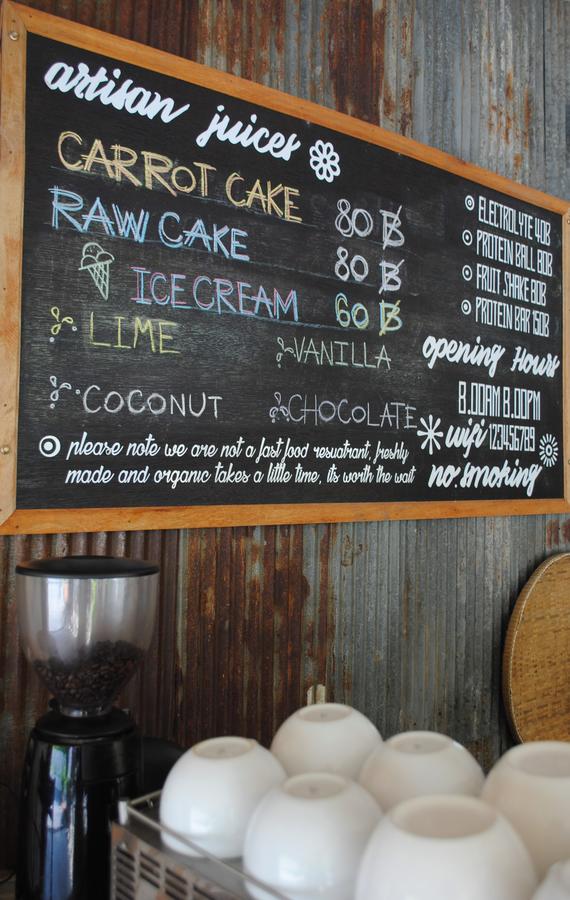 artisan juices
CARROT CAKE 80 ฿
RAW CAKE 80 ฿
ICE CREAM 60 ฿
LIME VANILLA
COCONUT CHOCOLATE
please note we are not a fast food resuatrant, freshly
made and organic takes a little time, its worth the wait
ELECTROLYTE 40B
PROTEIN BALL 80B
FRUIT SHAKE 80B
PROTEIN BAR 150B
opening Hours
8.00AM 8.00PM
wifi 123456789
no smoking